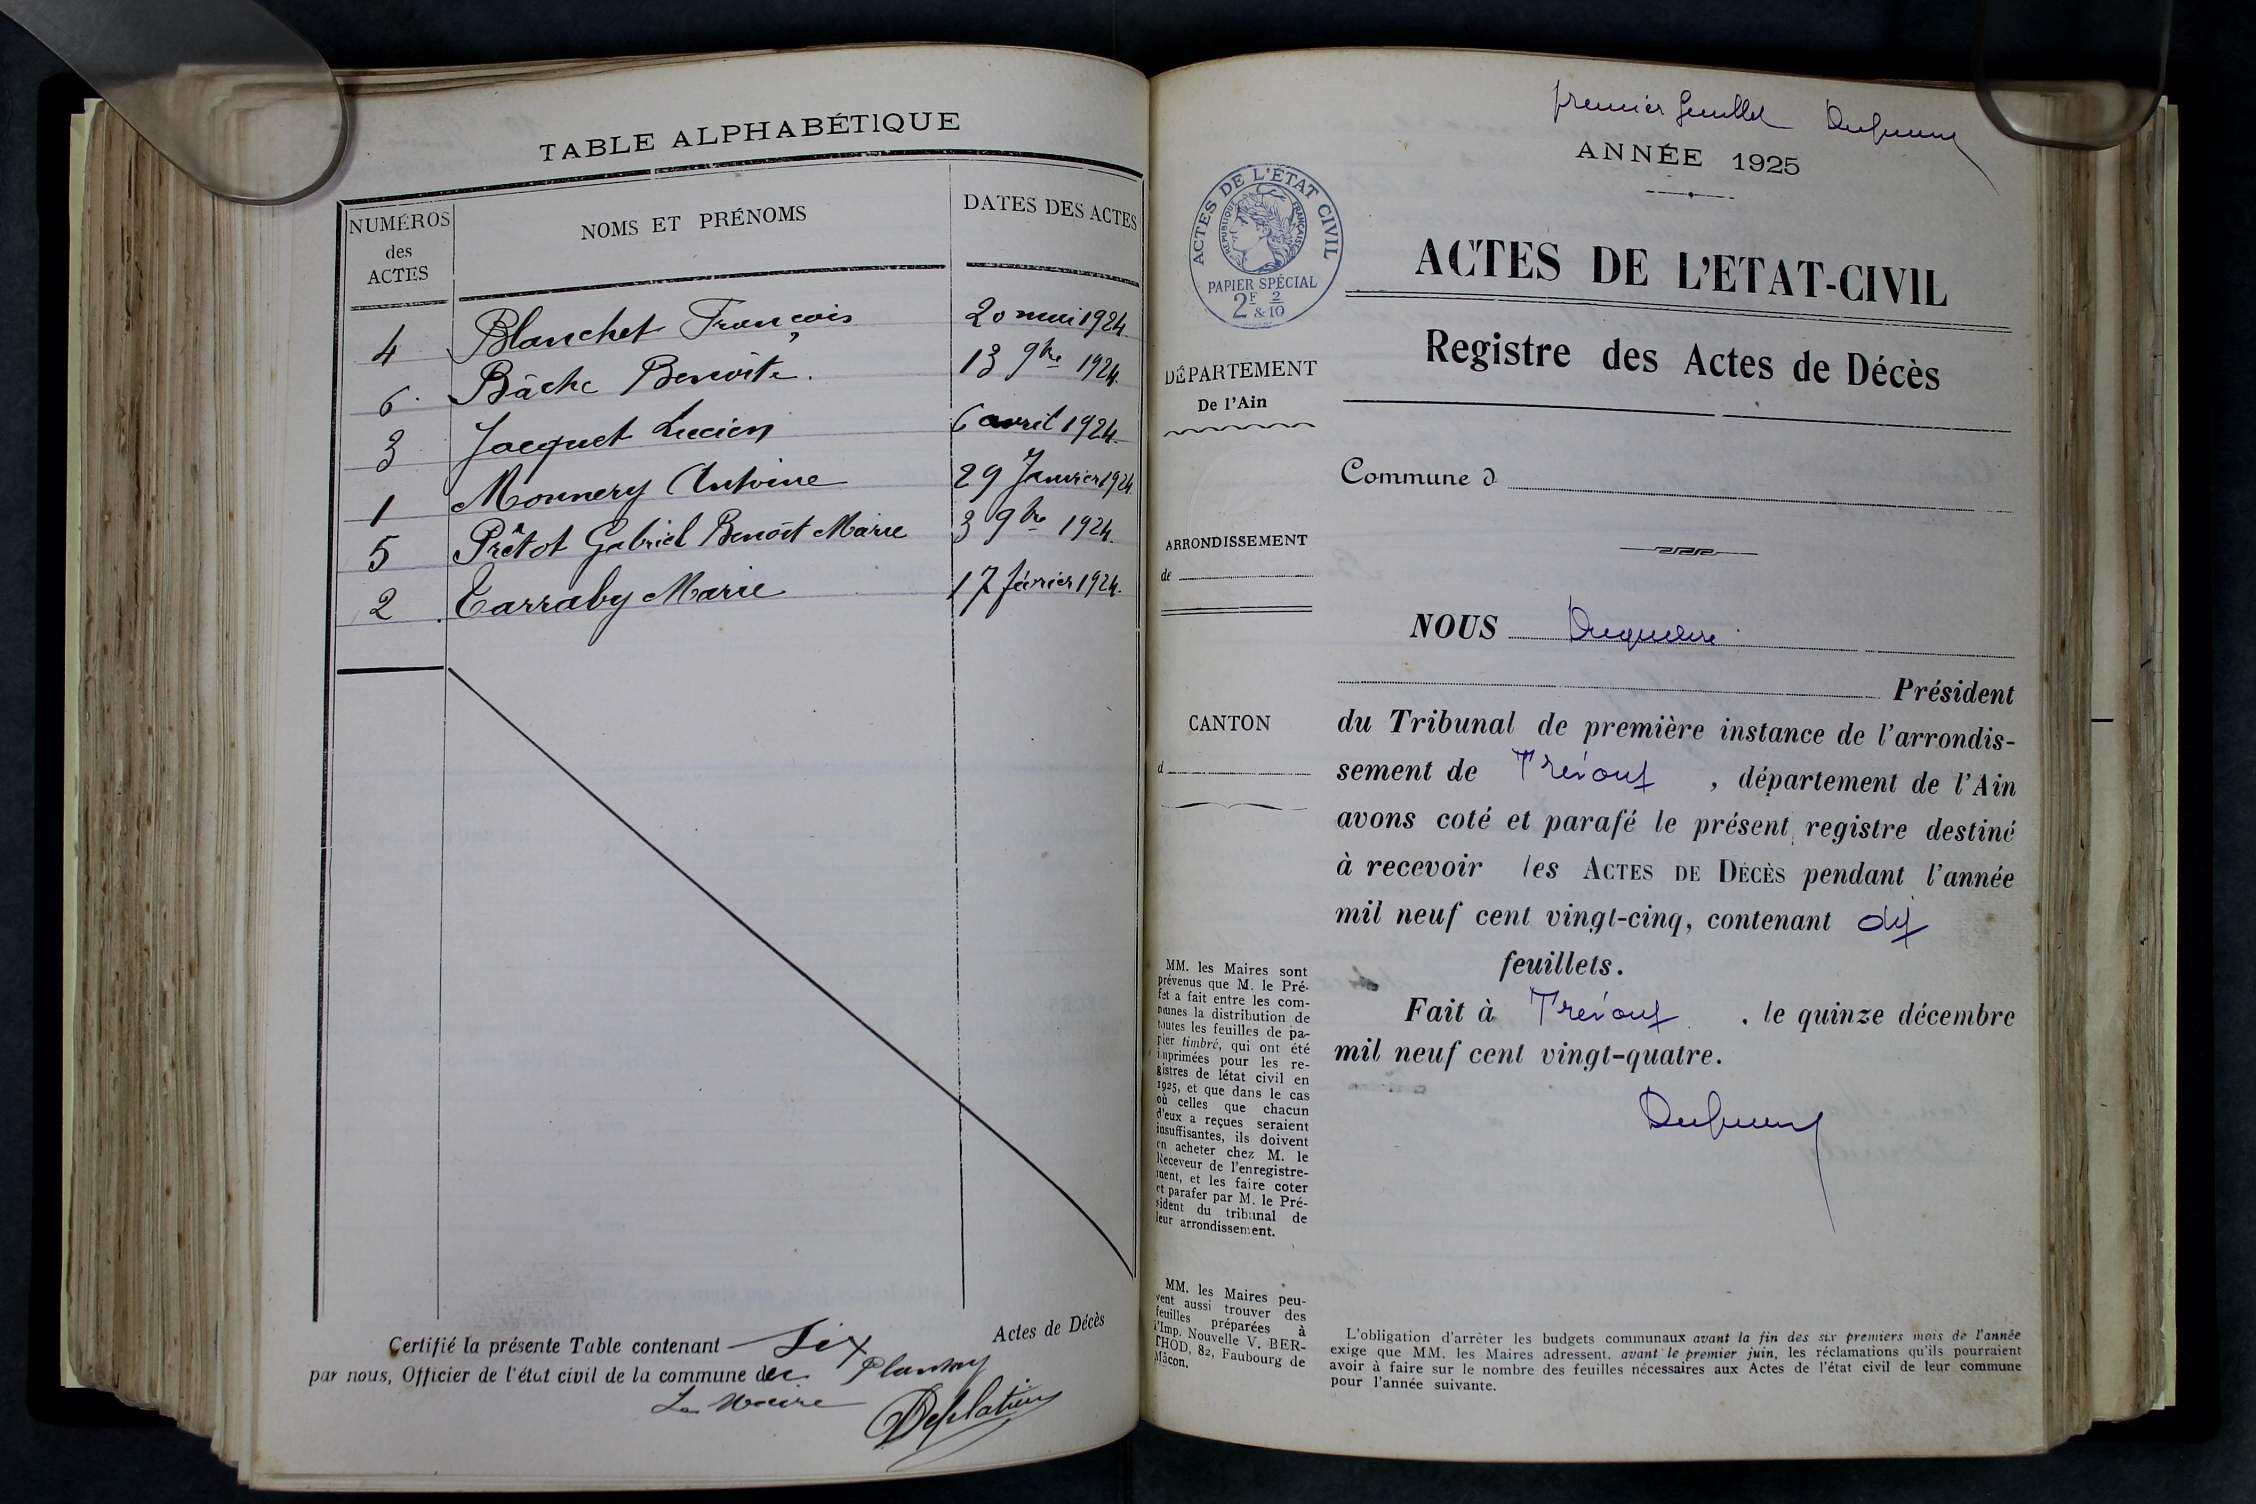 TABLE ALPHABÉTIQUE
NUMÉROS
des
ACTES
NOMS ET PRÉNOMS
DATES DES ACTES
4 Blanchet François 20 mai 1924
6 Bâche Benoite 13 9bre 1924
3 Jacquet Lucien 6 avril 1924
1 Monnery Antoine 29 Janvier 1924
5 Prêtot Gabriel Benoit Marie 3 9bre 1924
2 Carraby Marie 17 février 1924
Certifié la présente Table contenant Six Actes de Décès
par nous, Officier de l'état civil de la commune de
Le Maire
premier feuillet
ANNÉE 1925
ACTES DE L'ÉTAT CIVIL
RÉPUBLIQUE FRANÇAISE
PAPIER SPÉCIAL
2F 2
& 10
ACTES DE L'ETAT-CIVIL
Registre des Actes de Décès
DÉPARTEMENT
De l'Ain
Commune d
ARRONDISSEMENT
de
NOUS
Président
CANTON
d
du Tribunal de première instance de l'arrondis-
sement de Trévoux, département de l'Ain
avons coté et parafé le présent registre destiné
à recevoir les ACTES DE DÉCÈS pendant l'année
mil neuf cent vingt-cinq, contenant dix
feuillets.
Fait à Trévoux, le quinze décembre
mil neuf cent vingt-quatre.
MM. les Maires sont
prévenus que M. le Pré-
fet a fait entre les com-
munes la distribution de
toutes les feuilles de pa-
pier timbré, qui ont été
imprimées pour les re-
gistres de létat civil en
1925, et que dans le cas
où celles que chacun
d'eux a reçues seraient
insuffisantes, ils doivent
en acheter chez M. le
Receveur de l'enregistre-
ment, et les faire coter
et parafer par M. le Pré-
sident du tribunal de
leur arrondissement.
MM. les Maires peu-
vent aussi trouver des
feuilles préparées à
l'Imp. Nouvelle V. BER-
THOD, 82, Faubourg de
Mâcon.
L'obligation d'arrêter les budgets communaux avant la fin des six premiers mois de l'année
exige que MM. les Maires adressent, avant le premier juin, les réclamations qu'ils pourraient
avoir à faire sur le nombre des feuilles nécessaires aux Actes de l'état civil de leur commune
pour l'année suivante.